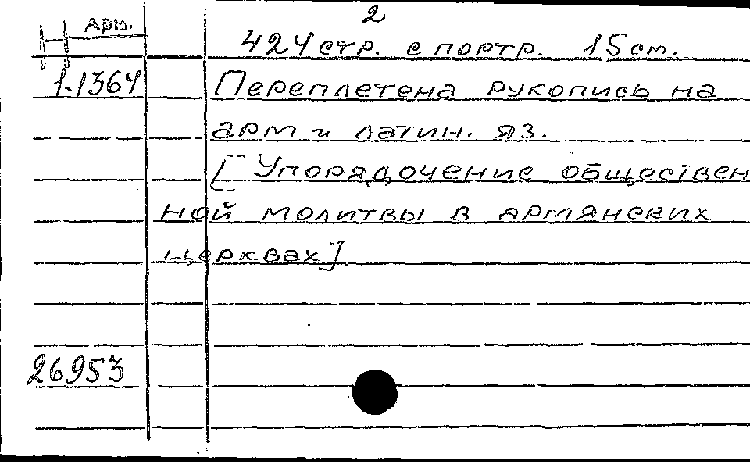 2
Арм.
424 стр. с портр. 15 см.
1.1364 Переплетена рукопись на
арм и латин. яз.
[Упорядочение обществен
ной молитвы в армянских
церквах]
26953